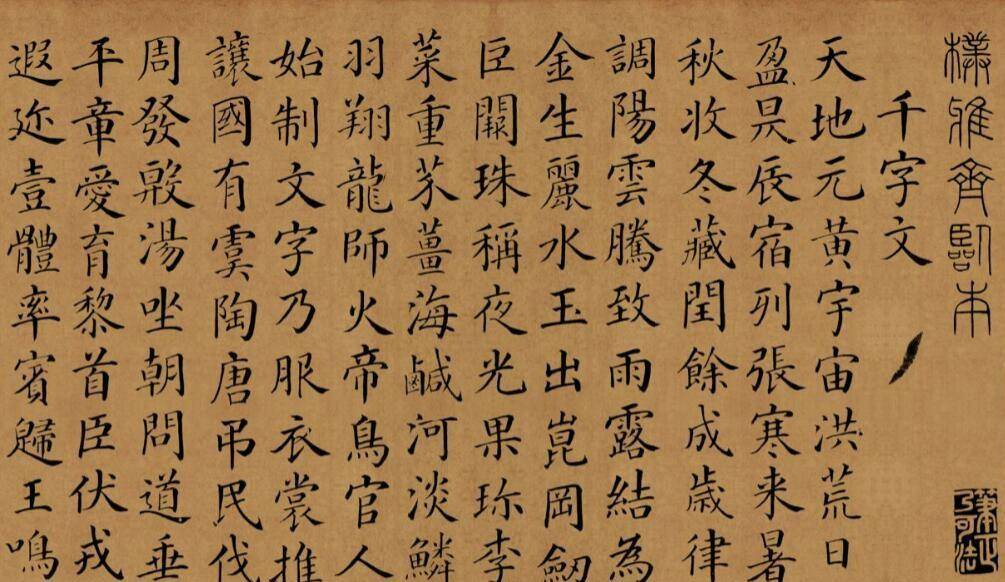 樸雅齊臨本
千字文
天地元黃宇宙洪荒日
盈昃辰宿列張寒来暑
秋收冬藏閏餘成歲律
調陽雲騰致雨露結為
金生麗水玉出崑岡劒
巨闕珠稱夜光果珎李
菜重芥薑海鹹河淡鱗
羽翔龍師火帝鳥官人
始制文字乃服衣裳推
讓國有虞陶唐吊民伐
周發殷湯坐朝問道垂
平章愛育黎首臣伏戎
遐迩壹體率賓歸王鳴